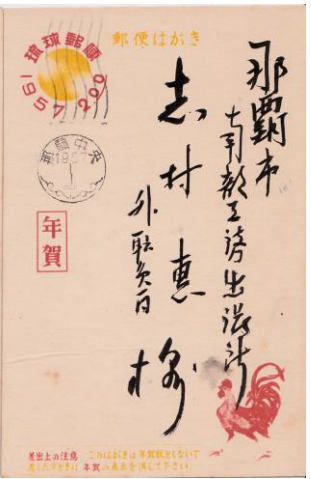 琉球郵便
1957 200
郵便はがき
那覇中央
1957
1
年賀
那覇市
南部工務出張所
志村恵様
外職員一同
差出上の注意 このはがきは年賀状としないで
差し出すときは年賀の表示を消して下さい。